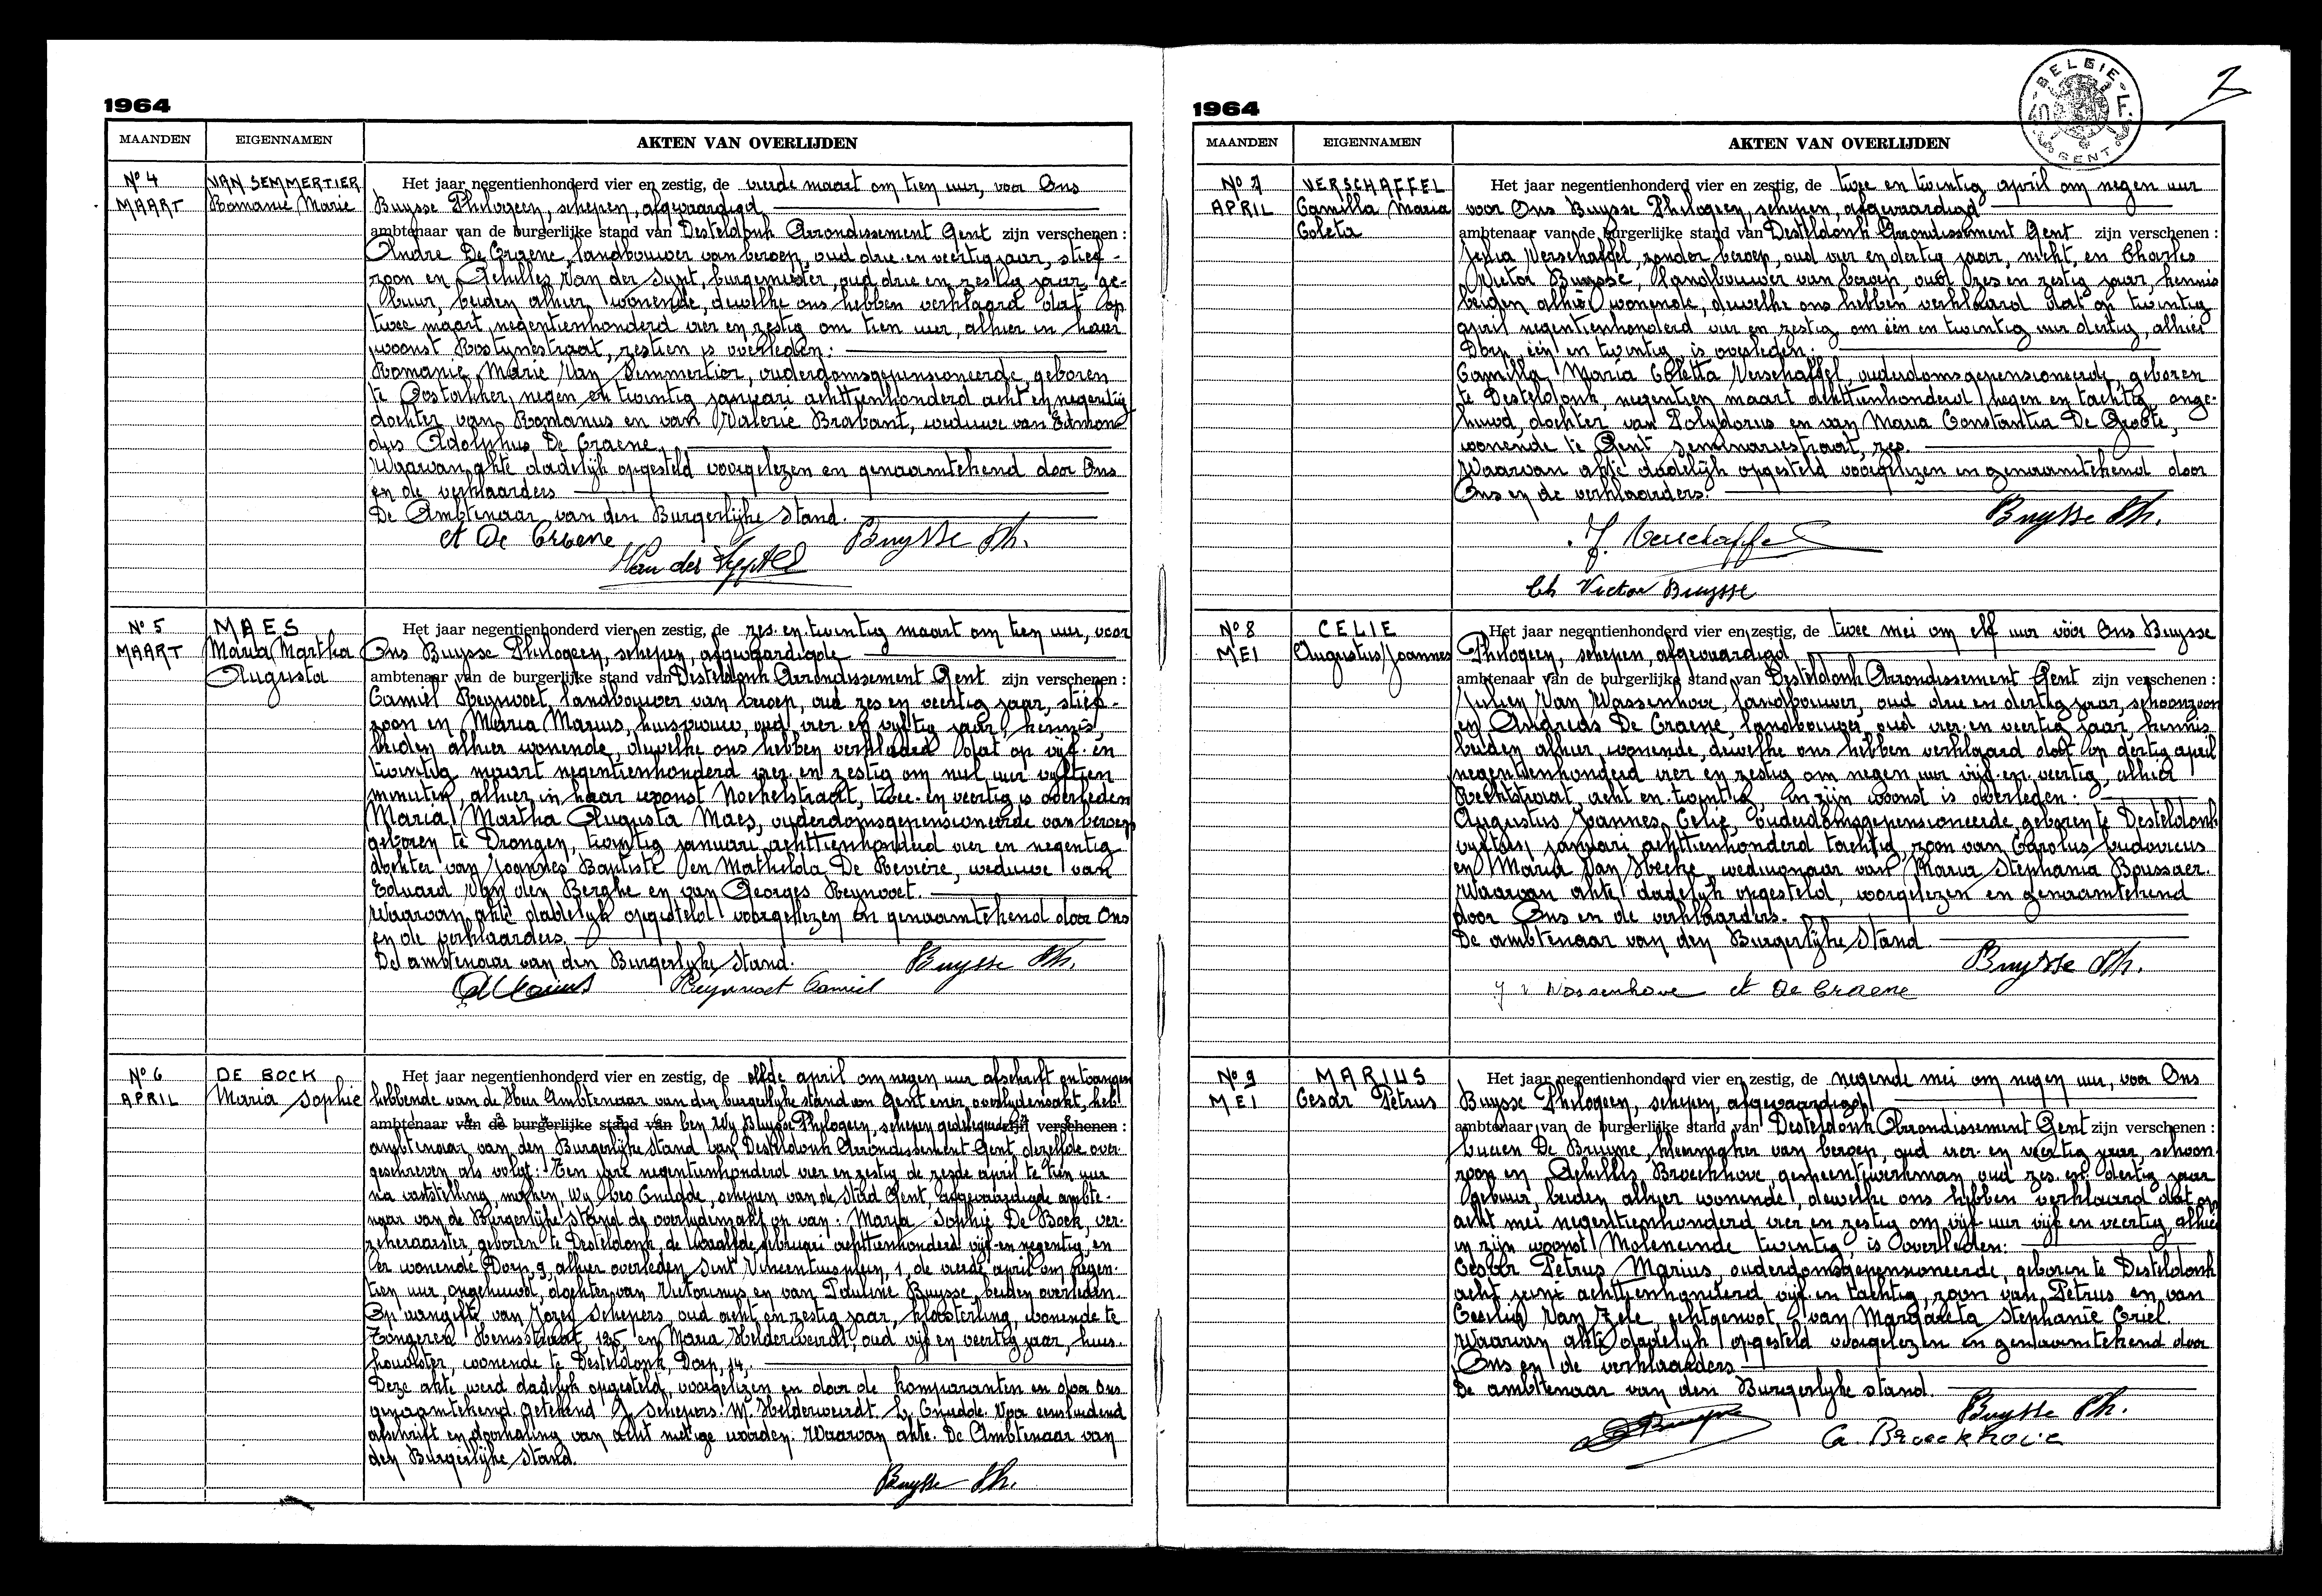 1964
MAANDEN EIGENNAMEN AKTEN VAN OVERLIJDEN
Nº 4 MAART
VAN SEMMERTIER Romanie Marie
Het jaar negentienhonderd vier en zestig, de vierde maart om tien uur, voor Ons
Buysse Philogeen, schepen, afgevaardigd
ambtenaar van de burgerlijke stand van Desteldonk Arrondissement Gent zijn verschenen :
Andre De Craene, landbouwer van beroep, oud drie en veertig jaar, stief-
zoon en Achilles Van der Sypt, burgemeester, oud drie en zestig jaar, ge-
buur, beiden alhier wonende, dewelke ons hebben verklaard dat op
twee maart negentienhonderd vier en zestig om tien uur, alhier in haar
woonst Rostynestraat, zestien is overleden:
Romanie Marie Van Semmertier, ouderdomsgepensioneerde, geboren
te Oostakker, negen en twintig januari achttienhonderd acht en negentig
dochter van Romanus en van Valerie Brabant, weduwe van Edmon-
dus Adolphus De Craene.
Waarvan akte dadelijk opgesteld voorgelezen en genaamtekend door Ons
en de verklaarders
De Ambtenaar van den Burgerlijke Stand.
A De Craene Buysse Ph.
Van der Sypt
Nº 5 MAART
MAES Maria Martha Augusta
Het jaar negentienhonderd vier en zestig, de zes en twintig maart om tien uur, voor
Ons Buysse Philogeen, schepen, afgevaardigde
ambtenaar van de burgerlijke stand van Desteldonk Arrondissement Gent zijn verschenen :
Camiel Reynvoet, landbouwer van beroep, oud zes en veertig jaar, stief-
zoon en Maria Marius, huisvrouw, oud vier en vijftig jaar, kennis,
beiden alhier wonende, dewelke ons hebben verklaard dat op vijf en
twintig maart negentienhonderd vier en zestig om nul uur vijftien
minuten, alhier in haar woonst Nokelstraat, twee en veertig is overleden
Maria Martha Augusta Maes, ouderdomsgepensioneerde van beroep
geboren te Drongen, twintig januari achttienhonderd vier en negentig
dochter van Joannes Baptiste en Mathilda De Revière, weduwe van
Eduard Van den Berghe en van Georges Reynvoet.
Waarvan akte dadelijk opgesteld voorgelezen en genaamtekend door Ons
en de verklaarders.
De ambtenaar van den Burgerlijke Stand. Buysse Ph.
Reynvoet Camiel
Nº 6 APRIL
DE BOCK Maria Sophie
Het jaar negentienhonderd vier en zestig, de elfde april om negen uur afschrift ontvangen
hebbende van de Heer Ambtenaar van den burgerlijke stand van Gent ener overlijdensakt, heb-
ambtenaar van de burgerlijke stand van ben Wy Buysse Philogeen, schepen gedelegeerde zijn verschenen :
ambtenaar van den Burgerlijke Stand van Desteldonk Arrondissement Gent dezelfde over-
geschreven als volgt: Ten jare negentienhonderd vier en zestig de zesde april te tien uur
na vaststelling, maken, wy Leo Cnudde, schepen van de Stad Gent, afgevaardigde ambte-
naar van de Burgerlijke Stand de overlijdensakt op van: Maria Sophie De Bock, ver-
zekeraarster, geboren te Desteldonk, de twaalfde februari achttienhonderd vijf en negentig, en
er wonende Dorp, 9, alhier overleden, Sint Vincentiusplein, 1, de vierde april om negen-
tien uur, ongehuwd, dochter van Victorinus en van Pauline Buysse, beiden overleden.
Op aangifte van Jozef Schepers, oud acht en zestig jaar, kloosterling, wonende te
Tongeren Henisstraat, 125 en Maria Helderweirdt, oud vijf en veertig jaar, huis-
houdster, wonende te Desteldonk, Dorp, 14.
Deze akte werd dadelijk opgesteld, voorgelezen en door de komparanten en door Ons
genaamtekend. getekend J Schepers. M. Helderweirdt. L. Cnudde. Voor eensluidend
afschrift en doorhaling van acht nietige woorden. Waarvan akte. De Ambtenaar van
den Burgerlijke Stand.
Buysse Ph.
1964
BELGIE GENT
2
MAANDEN EIGENNAMEN AKTEN VAN OVERLIJDEN
Nº 7 APRIL
VERSCHAFFEL Camilla Maria Coleta
Het jaar negentienhonderd vier en zestig, de twee en twintig april om negen uur
voor Ons Buysse Philogeen, schepen, afgevaardigd
ambtenaar van de burgerlijke stand van Desteldonk Arrondissement Gent zijn verschenen :
Julia Verschaffel, zonder beroep, oud vier en dertig jaar, nicht, en Charles
Victor Buysse, landbouwer van beroep, oud zes en zestig jaar, kennis
beiden alhier wonende, dewelke ons hebben verklaard dat op twintig
april negentienhonderd vier en zestig om één en twintig uur dertig, alhier
Dorp, één en twintig is overleden.
Camilla Maria Coletta Verschaffel, ouderdomsgepensioneerde, geboren
te Desteldonk, negentien maart achttienhonderd negen en tachtig, onge-
huwd, dochter van Polydorus en van Maria Constantia De Groote,
wonende te Gent, Seminariestraat, zes.
Waarvan akte dadelijk opgesteld voorgelezen en genaamtekend door
Ons en de verklaarders.
Buysse Ph.
J. Verschaffel
Ch Victor Buysse
Nº 8 MEI
CELIE Augustus Joannes
Het jaar negentienhonderd vier en zestig, de twee mei om elf uur vóór Ons Buysse
Philogeen, schepen, afgevaardigd
ambtenaar van de burgerlijke stand van Desteldonk Arrondissement Gent zijn verschenen :
Julien Van Wassenhove, landbouwer, oud drie en dertig jaar, schoonzoon
en Andreas De Craene, landbouwer, oud vier en veertig jaar, kennis,
beiden alhier wonende, dewelke ons hebben verklaard dat op dertig april
negentienhonderd vier en zestig om negen uur vijf en veertig, alhier
Rechtstraat, acht en twintig, in zijn woonst is overleden:
Augustus Joannes Celie, ouderdomsgepensioneerde, geboren te Desteldonk
vijftien januari achttienhonderd tachtig, zoon van Carolus Ludovicus
en Maria Van Hecke, weduwnaar van Maria Stephania Boussaer.
Waarvan akte dadelijk opgesteld, voorgelezen en genaamtekend
door Ons en de verklaarders.
De ambtenaar van den Burgerlijke Stand
Buysse Ph.
J v Wassenhove A De Craene
Nº 9 MEI
MARIUS Cesar Petrus
Het jaar negentienhonderd vier en zestig, de negende mei om negen uur, voor Ons
Buysse Philogeen, schepen, afgevaardigd
ambtenaar van de burgerlijke stand van Desteldonk Arrondissement Gent zijn verschenen :
Lucien De Bruyne, kleermaker van beroep, oud vier en veertig jaar, schoon-
zoon en Achilles Broeckhove, gesticentwerkman oud zes en dertig jaar
gebuur, beiden alhier wonende, dewelke ons hebben verklaard dat op
acht mei negentienhonderd vier en zestig om vijf uur vijf en veertig, alhier
in zijn woonst Moleneinde twintig, is overleden:
Cesar Petrus Marius, ouderdomsgepensioneerde, geboren te Desteldonk
acht juni achttienhonderd vijf en tachtig, zoon van Petrus en van
Coralie Van Zele echtgenoot van Margareta Stephanie Criel.
Waarvan akte dadelijk opgesteld voorgelezen en genaamtekend door
Ons en de verklaarders
De ambtenaar van den Burgerlyke stand.
Buysse Ph.
A. Broeckhove